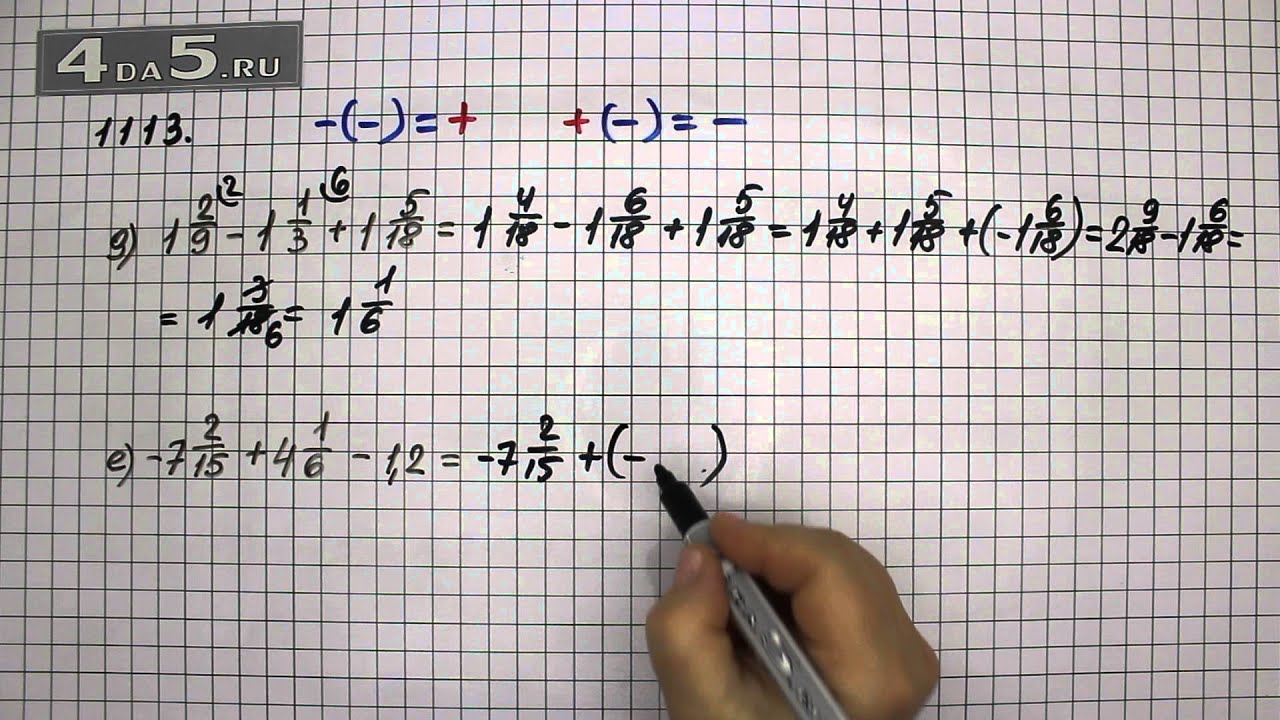 4DA5.RU
1113. -(-)=+ +(-)=-
g) 1 2/9 - 1 1/3 + 1 5/18 = 1 4/18 - 1 6/18 + 1 5/18 = 1 4/18 + 1 5/18 + (-1 6/18) = 2 9/18 - 1 6/18 =
= 1 3/18 = 1 1/6
е) -7 2/15 + 4 1/6 - 1,2 = -7 2/15 + (- )